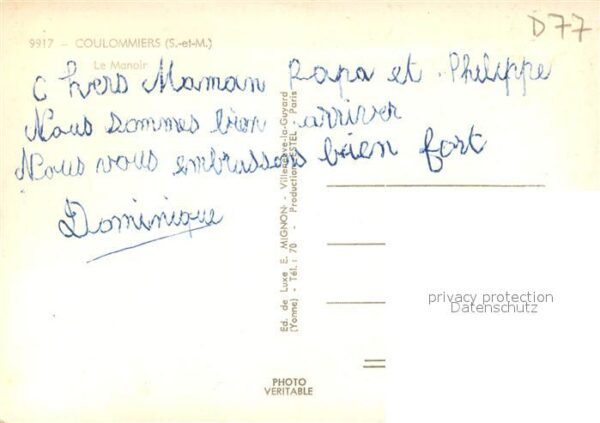 D77
9917 - COULOMMIERS (S.-et-M.)
Le Manoir
Chers Maman Papa et Philippe
Nous sommes bien arriver
Nous vous embrassons bien fort
Dominique
Ed. de Luxe E. MIGNON - Villeneuve-la-Guyard
(Yonne) - Tél. : 70 - Production ESTEL - Paris
privacy protection
Datenschutz
PHOTO
VERITABLE